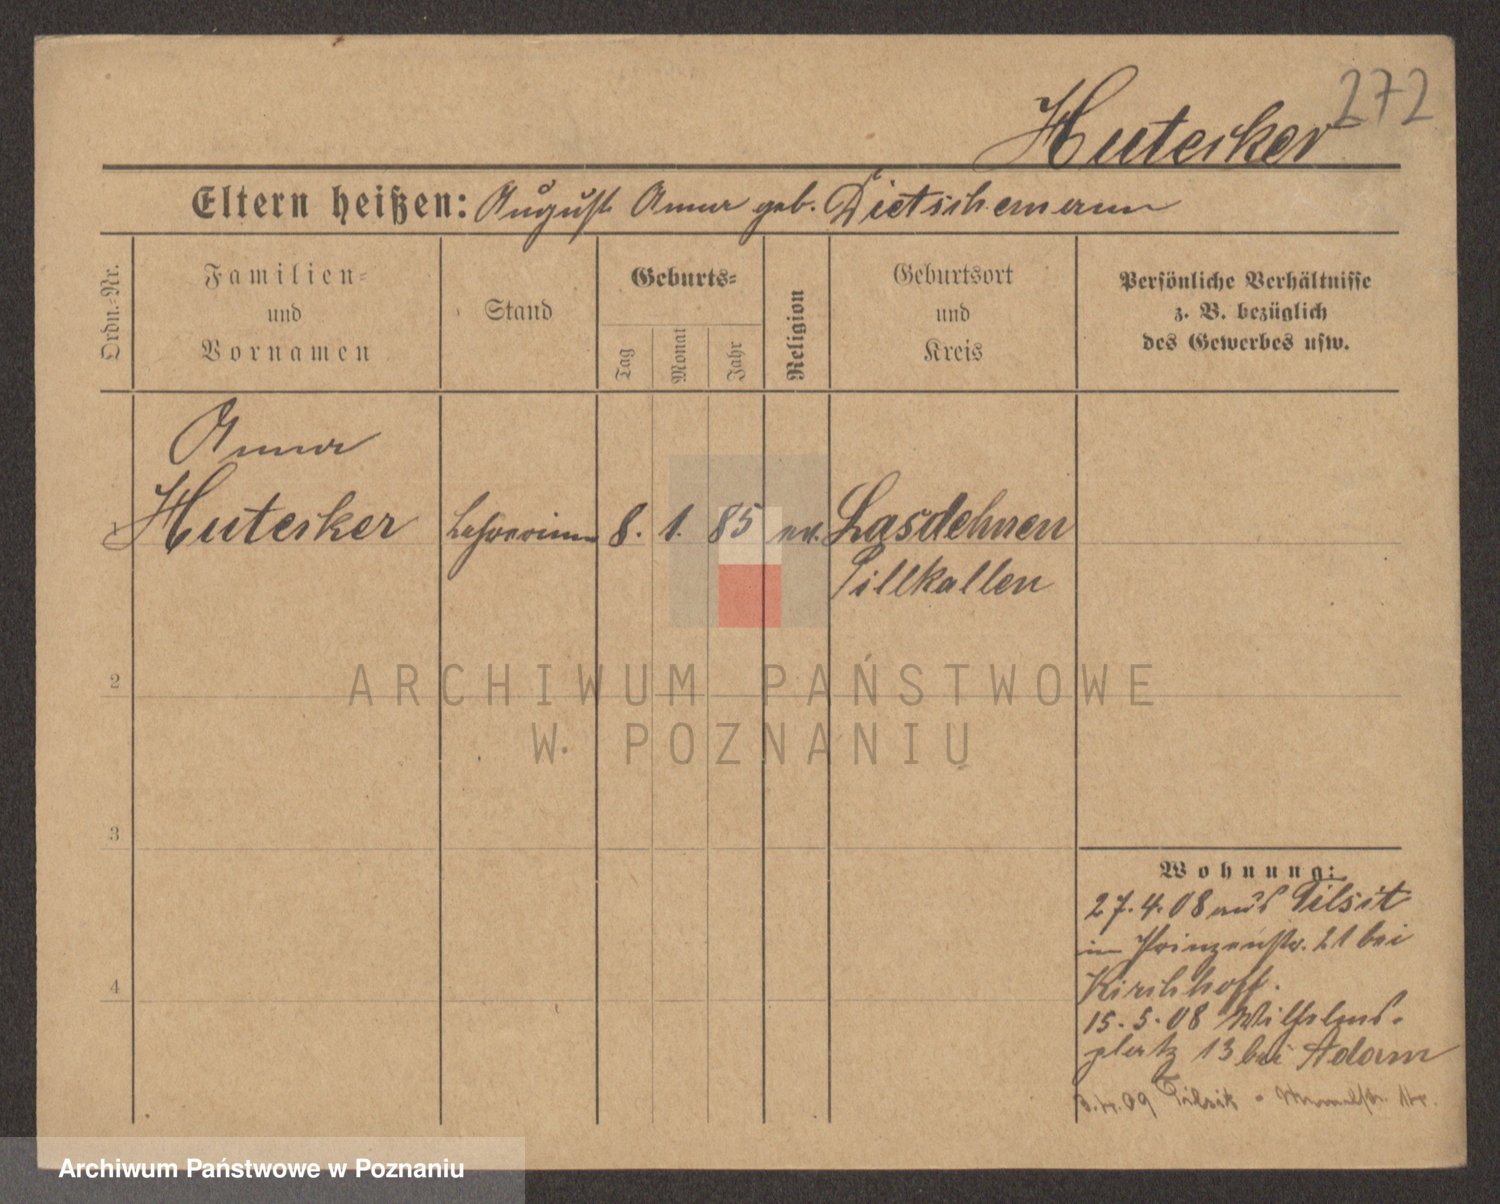 272
Hutecker
Eltern heißen: August Anna geb. Dietschemann
Ordn.-Nr.
Familien-
und
Vornamen
Stand
Geburts-
Tag
Monat
Jahr
Religion
Geburtsort
und
Kreis
Persönliche Verhältnisse
z. B. bezüglich
des Gewerbes usw.
Anna
1 Hutecker Lehrerinn 8. 1. 85 ev. Lasdehnen
Pillkallen
2
3
4
Wohnung:
27.4.08 aus Tilsit
in Prinzenstr. 21 bei
Kirchhoff.
15.5.08 Wilhelms-
platz 13 bei Adam
3.4.09 Tilsit
ARCHIWUM PAŃSTWOWE
W POZNANIU
Archiwum Państwowe w Poznaniu